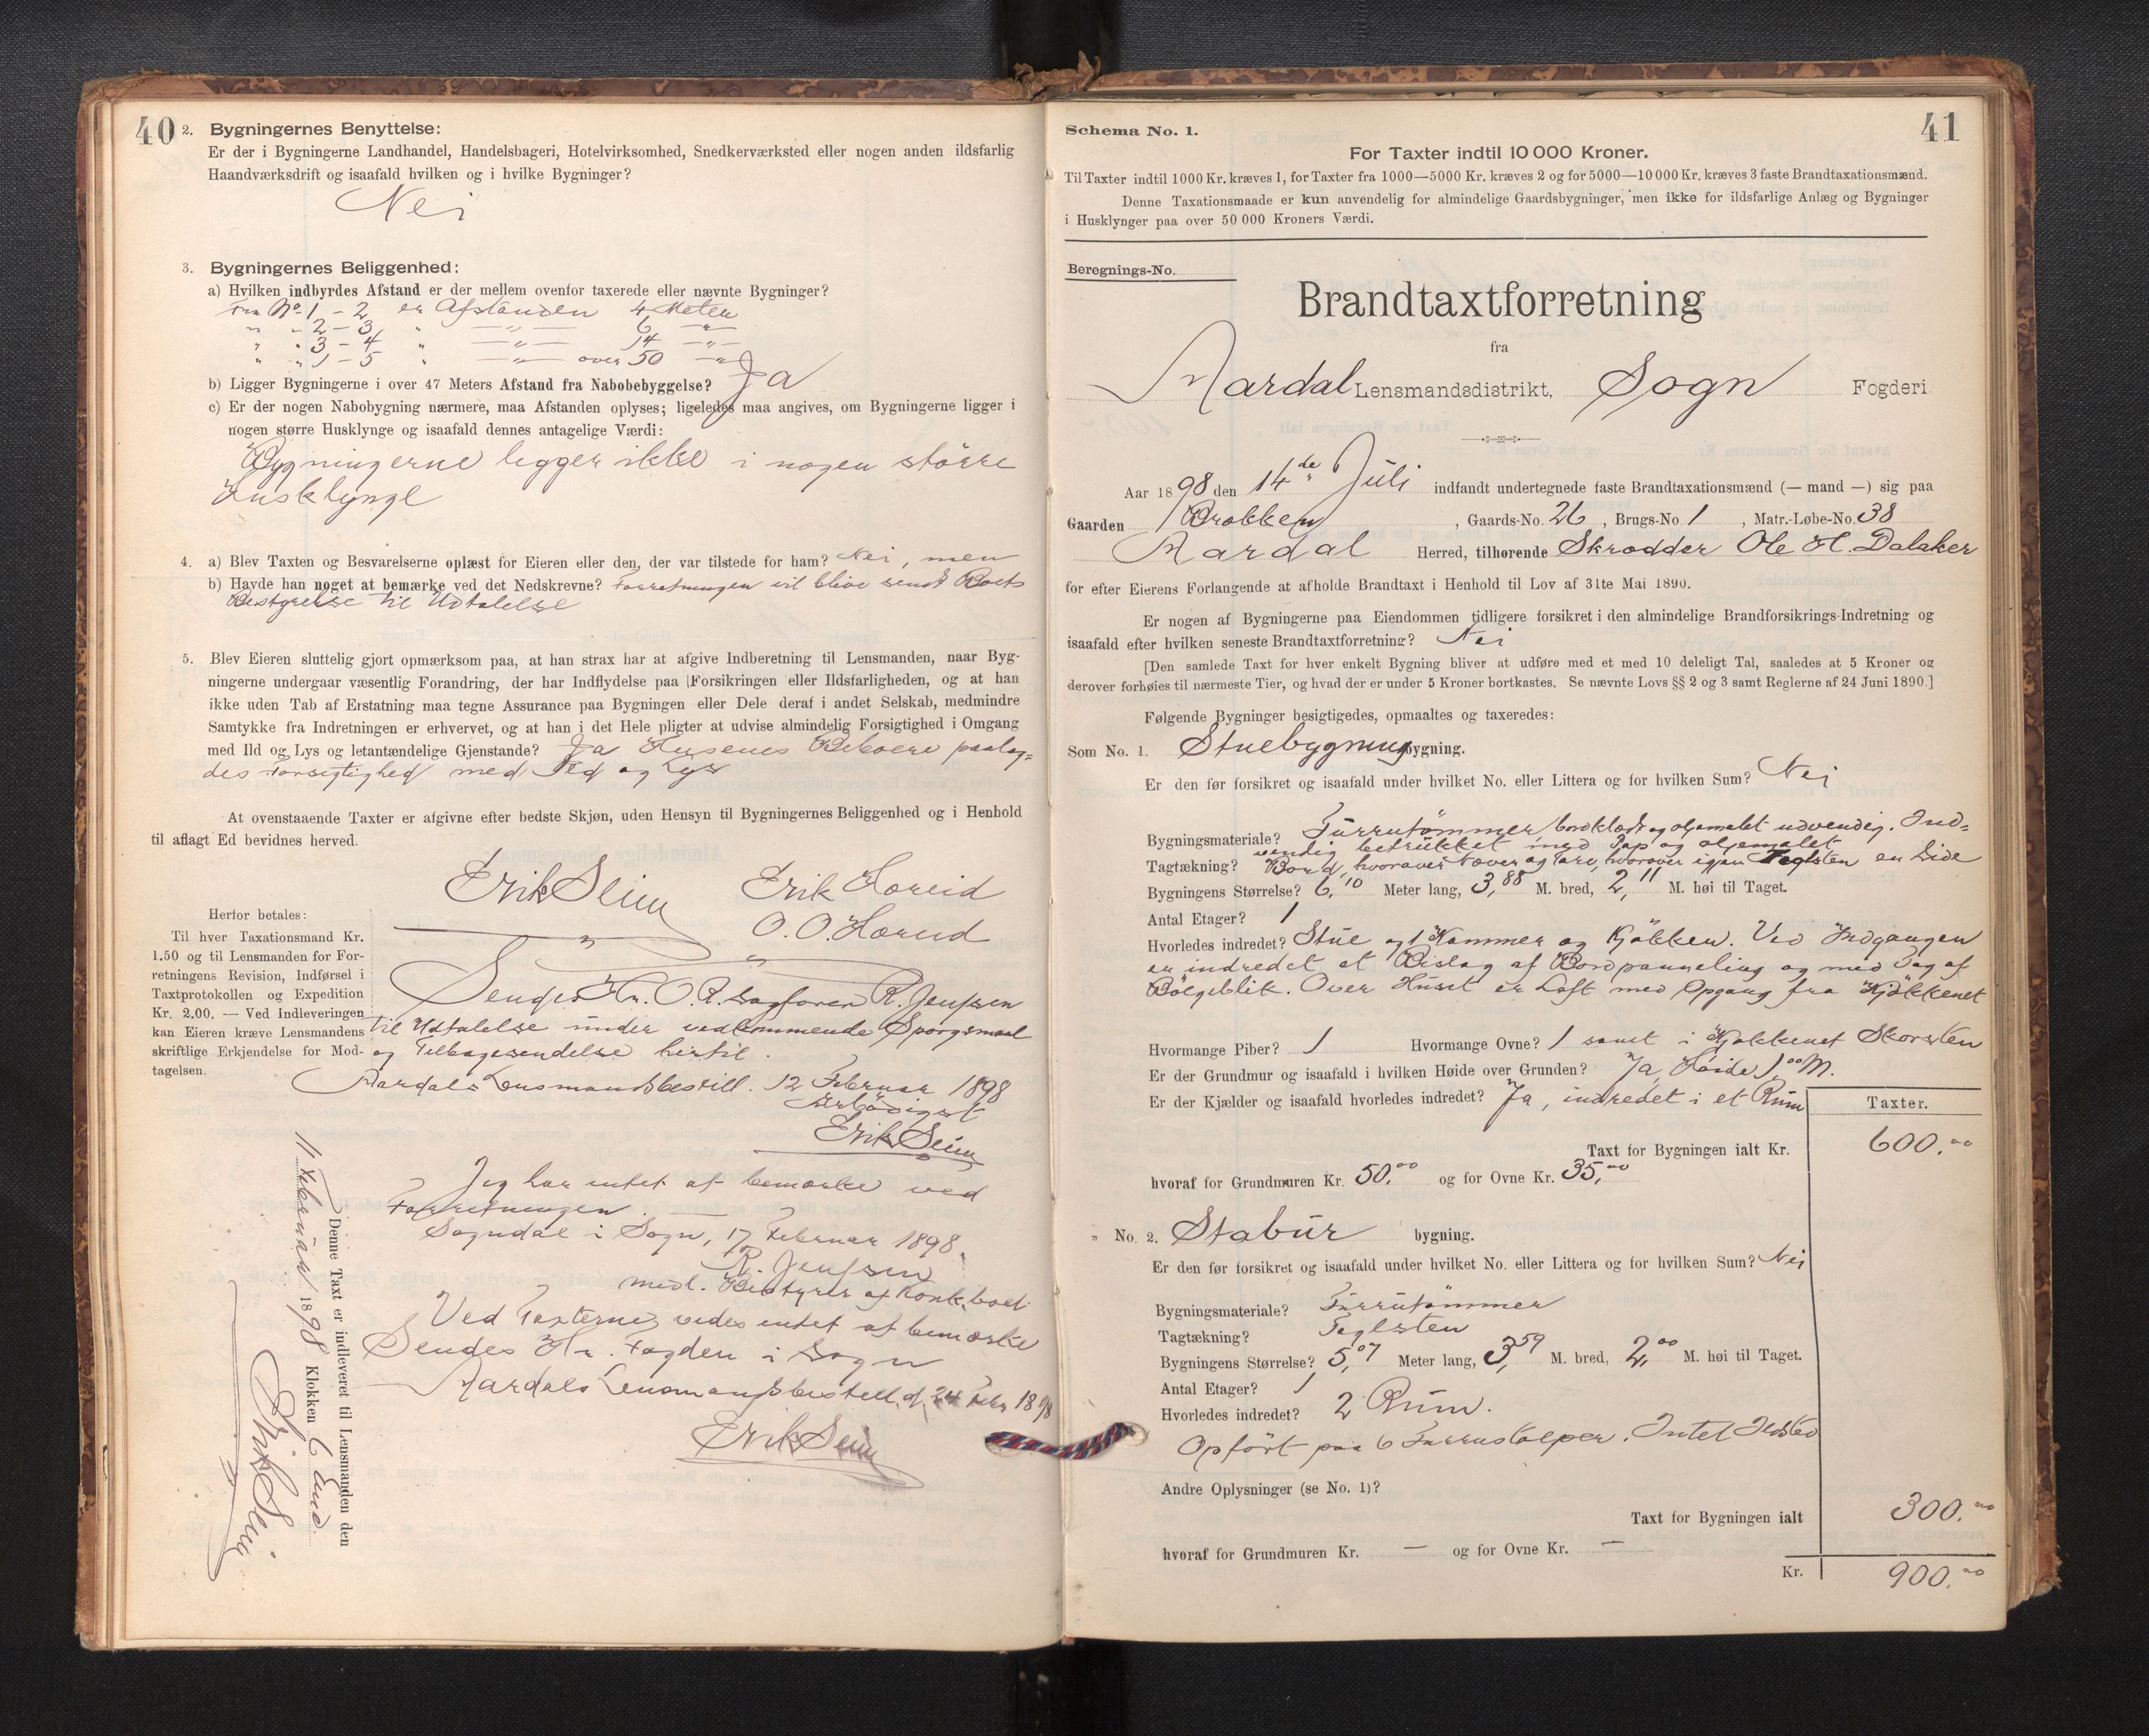 40
2. Bygningernes Benyttelse:
Er der i Bygningerne Landhandel, Handelsbageri, Hotelvirksomhed, Snedkerværksted eller nogen anden ildsfarlig
Haandværksdrift og isaafald hvilken og i hvilke Bygninger?
Nei
3. Bygningernes Beliggenhed:
a) Hvilken indbyrdes Afstand er der mellem ovenfor taxerede eller nævnte Bygninger?
Fra No 1 - 2 er Afstanden 4 Meter
" " 2 - 3 " — " — 6 — " —
" " 3 - 4 " — " — 14 — " —
" " 1 - 5 " — " — over 50 — " —
b) Ligger Bygningerne i over 47 Meters Afstand fra Nabobebyggelse? Ja
c) Er der nogen Nabobygning nærmere, maa Afstanden oplyses; ligeledes maa angives, om Bygningerne ligger i
nogen større Husklynge og isaafald dennes antagelige Værdi:
Bygningerne ligger ikke i nogen större
Husklynge
4. a) Blev Taxten og Besvarelserne oplæst for Eieren eller den, der var tilstede for ham? Nei, men
b) Havde han noget at bemærke ved det Nedskrevne? Forretningen vil blive sendt Boets
Bestyrelse til Udtalelse
5. Blev Eieren sluttelig gjort opmærksom paa, at han strax har at afgive Indberetning til Lensmanden, naar Byg-
ningerne undergaar væsentlig Forandring, der har Indflydelse paa Forsikringen eller Ildsfarligheden, og at han
ikke uden Tab af Erstatning maa tegne Assurance paa Bygningen eller Dele deraf i andet Selskab, medmindre
Samtykke fra Indretningen er erhvervet, og at han i det Hele pligter at udvise almindelig Forsigtighed i Omgang
med Ild og Lys og letantændelige Gjenstande? Ja Husenes Beboere paalag=
des Forsigtighed med Ild og Lys
At ovenstaaende Taxter er afgivne efter bedste Skjøn, uden Hensyn til Bygningernes Beliggenhed og i Henhold
til aflagt Ed bevidnes herved.
Erik Seim Erik Horeid
O. O. Horeid
Herfor betales:
Til hver Taxationsmand Kr.
1.50 og til Lensmanden for For-
retningens Revision, Indførsel i
Taxtprotokollen og Expedition
Kr. 2.00. — Ved Indleveringen
kan Eieren kræve Lensmandens
skriftlige Erkjendelse for Mod-
tagelsen.
Sendes Hr. O. R. Sagförer R. Jenssen
til Udtalelse under vedkommende Spørgsmaal
og Tilbagesendelse hertil.
Aardals Lensmandsbestill. 12 Februar 1898
Ærbödigst
Erik Seim
Jeg har intet at bemærke ved
Forretningen.
Sogndal i Sogn, 17 Februar 1898.
R. Jenssen
medl. Bestyrer af Konk.boet
Ved Taxterne vides intet at bemærke
Sendes Hr. Fogden i Sogn
Aardals Lensmandsbestill. d. 24 Febr 1898
Erik Seim
Denne Taxt er indleveret til Lensmanden den
11 Februar 1898 Klokken 6 Emd.
Erik Seim
41
Schema No. 1.
For Taxter indtil 10 000 Kroner.
Til Taxter indtil 1000 Kr. kræves 1, for Taxter fra 1000—5000 Kr. kræves 2 og for 5000—10 000 Kr. kræves 3 faste Brandtaxationsmænd.
Denne Taxationsmaade er kun anvendelig for almindelige Gaardsbygninger, men ikke for ildsfarlige Anlæg og Bygninger
i Husklynger paa over 50 000 Kroners Værdi.
Beregnings-No.
Brandtaxtforretning
fra
Aardal Lensmandsdistrikt, Sogn Fogderi
Aar 1898 den 14de Juli indfandt undertegnede faste Brandtaxationsmænd (— mand —) sig paa
Gaarden Brækken, Gaards-No. 26, Brugs-No. 1, Matr.-Løbe-No. 38
Aardal Herred, tilhørende Skrædder Ole H. Dalaker
for efter Eierens Forlangende at afholde Brandtaxt i Henhold til Lov af 31te Mai 1890.
Er nogen af Bygningerne paa Eiendommen tidligere forsikret i den almindelige Brandforsikrings-Indretning og
isaafald efter hvilken seneste Brandtaxtforretning? Nei
[Den samlede Taxt for hver enkelt Bygning bliver at udføre med et med 10 deleligt Tal, saaledes at 5 Kroner og
derover forhøies til nærmeste Tier, og hvad der er under 5 Kroner bortkastes. Se nævnte Lovs §§ 2 og 3 samt Reglerne af 24 Juni 1890.]
Følgende Bygninger besigtigedes, opmaaltes og taxeredes:
Som No. 1. Stuebygning bygning.
Er den før forsikret og isaafald under hvilket No. eller Littera og for hvilken Sum? Nei
Bygningsmateriale? Furrutömmer, bordklædt og oljemalet udvendig. Ind=
vendig betrukket med Pap og oljemalet
Tagtækning? Bord, hvorover Næver og Tærv, hvorover igjen Teglsten en Side
Bygningens Størrelse? 6,10 Meter lang, 3,88 M. bred, 2,11 M. høi til Taget.
Antal Etager? 1
Hvorledes indredet? Stue og 1 Kammer og Kjökken. Ved Indgangen
er indredet et Bislag af Bordpanneling og med Tag af
Bölgeblik. Over Huset er Loft med Opgang fra Kjökkenet
Hvormange Piber? 1 Hvormange Ovne? 1 samt i Kjøkkenet Skorsten
Er der Grundmur og isaafald i hvilken Høide over Grunden? Ja, Höide 1,00 M.
Er der Kjælder og isaafald hvorledes indredet? Ja, indredet i et Rum
Taxter.
Taxt for Bygningen ialt Kr. 600.00
hvoraf for Grundmuren Kr. 50,00 og for Ovne Kr. 35,00
" No. 2. Stabur bygning.
Er den før forsikret og isaafald under hvilket No. eller Littera og for hvilken Sum? Nei
Bygningsmateriale? Furrutömmer
Tagtækning? Teglsten
Bygningens Størrelse? 5,07 Meter lang, 3,59 M. bred, 2,00 M. høi til Taget.
Antal Etager? 1
Hvorledes indredet? 2 Rum.
Opfört paa 6 Furrustolper. Intet Ildsted
Andre Oplysninger (se No. 1)?
Taxt for Bygningen ialt 300.00
hvoraf for Grundmuren Kr. — og for Ovne Kr. —
Kr. 900.00